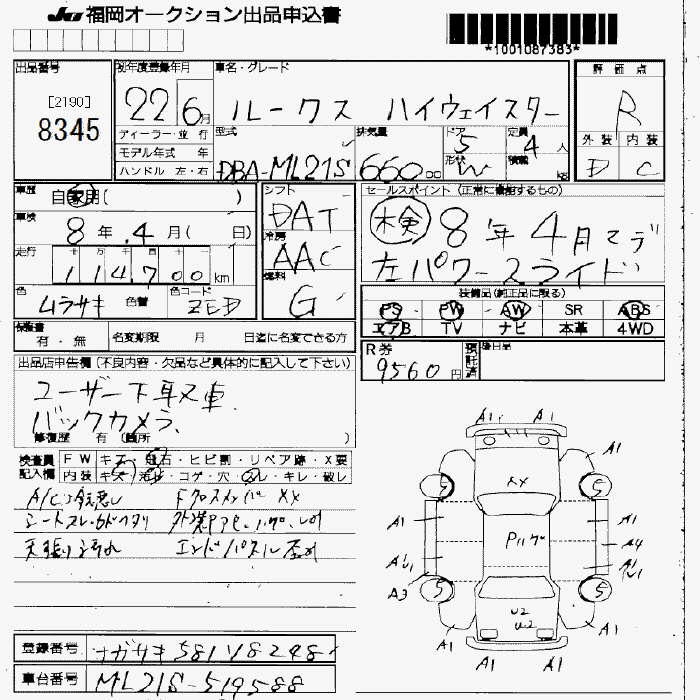 JU 福岡オークション出品申込書
*1001087383*
出品番号
[2190]
8345
初年度登録年月
22 6月
ディーラー・並行
モデル年式 年
ハンドル 左・右
車名・グレード
ルークス ハイウェイスター
型式
DBA-ML21S
排気量
660cc
ドア
5
形状
W
定員
4人
積載
kg
評価点
R
外装 内装
D C
車歴
自家用( )
車検
8年 4月( 日)
走行
十 万 千 百 十 一
114700km
色
ムラサキ
色替
色コード
ZED
シフト
DAT
冷房
AAC
燃料
G
セールスポイント (正常に機能するもの)
検 8年4月マデ
左パワースライド
装備品(純正品に限る)
PS PW AW SR ABS
エアB TV ナビ 本革 4WD
保証書
有・無
名変期限 月 日迄に名変できる方
R券
9560円
預託済
後日品
出品店申告欄(不良内容・欠品など具体的に記入して下さい)
ユーザー下取車.
バックカメラ、
修復歴 有 (箇所 )
検査員
記入欄
FW キズ・飛石・ヒビ割・リペア跡・X要
内装 キズ・汚れ・コゲ・穴・スレ・キレ・破レ
A/C
FクロスメンバXX
天張り汚れ
A1 A1
A1 A1
5 5
XX
A1 A1
Pいげ
A4
A3
5 5
U2
U2
A1 A1
A1 A1
登録番号
ナガサキ 581 ソ 8248
車台番号
ML21S-519588